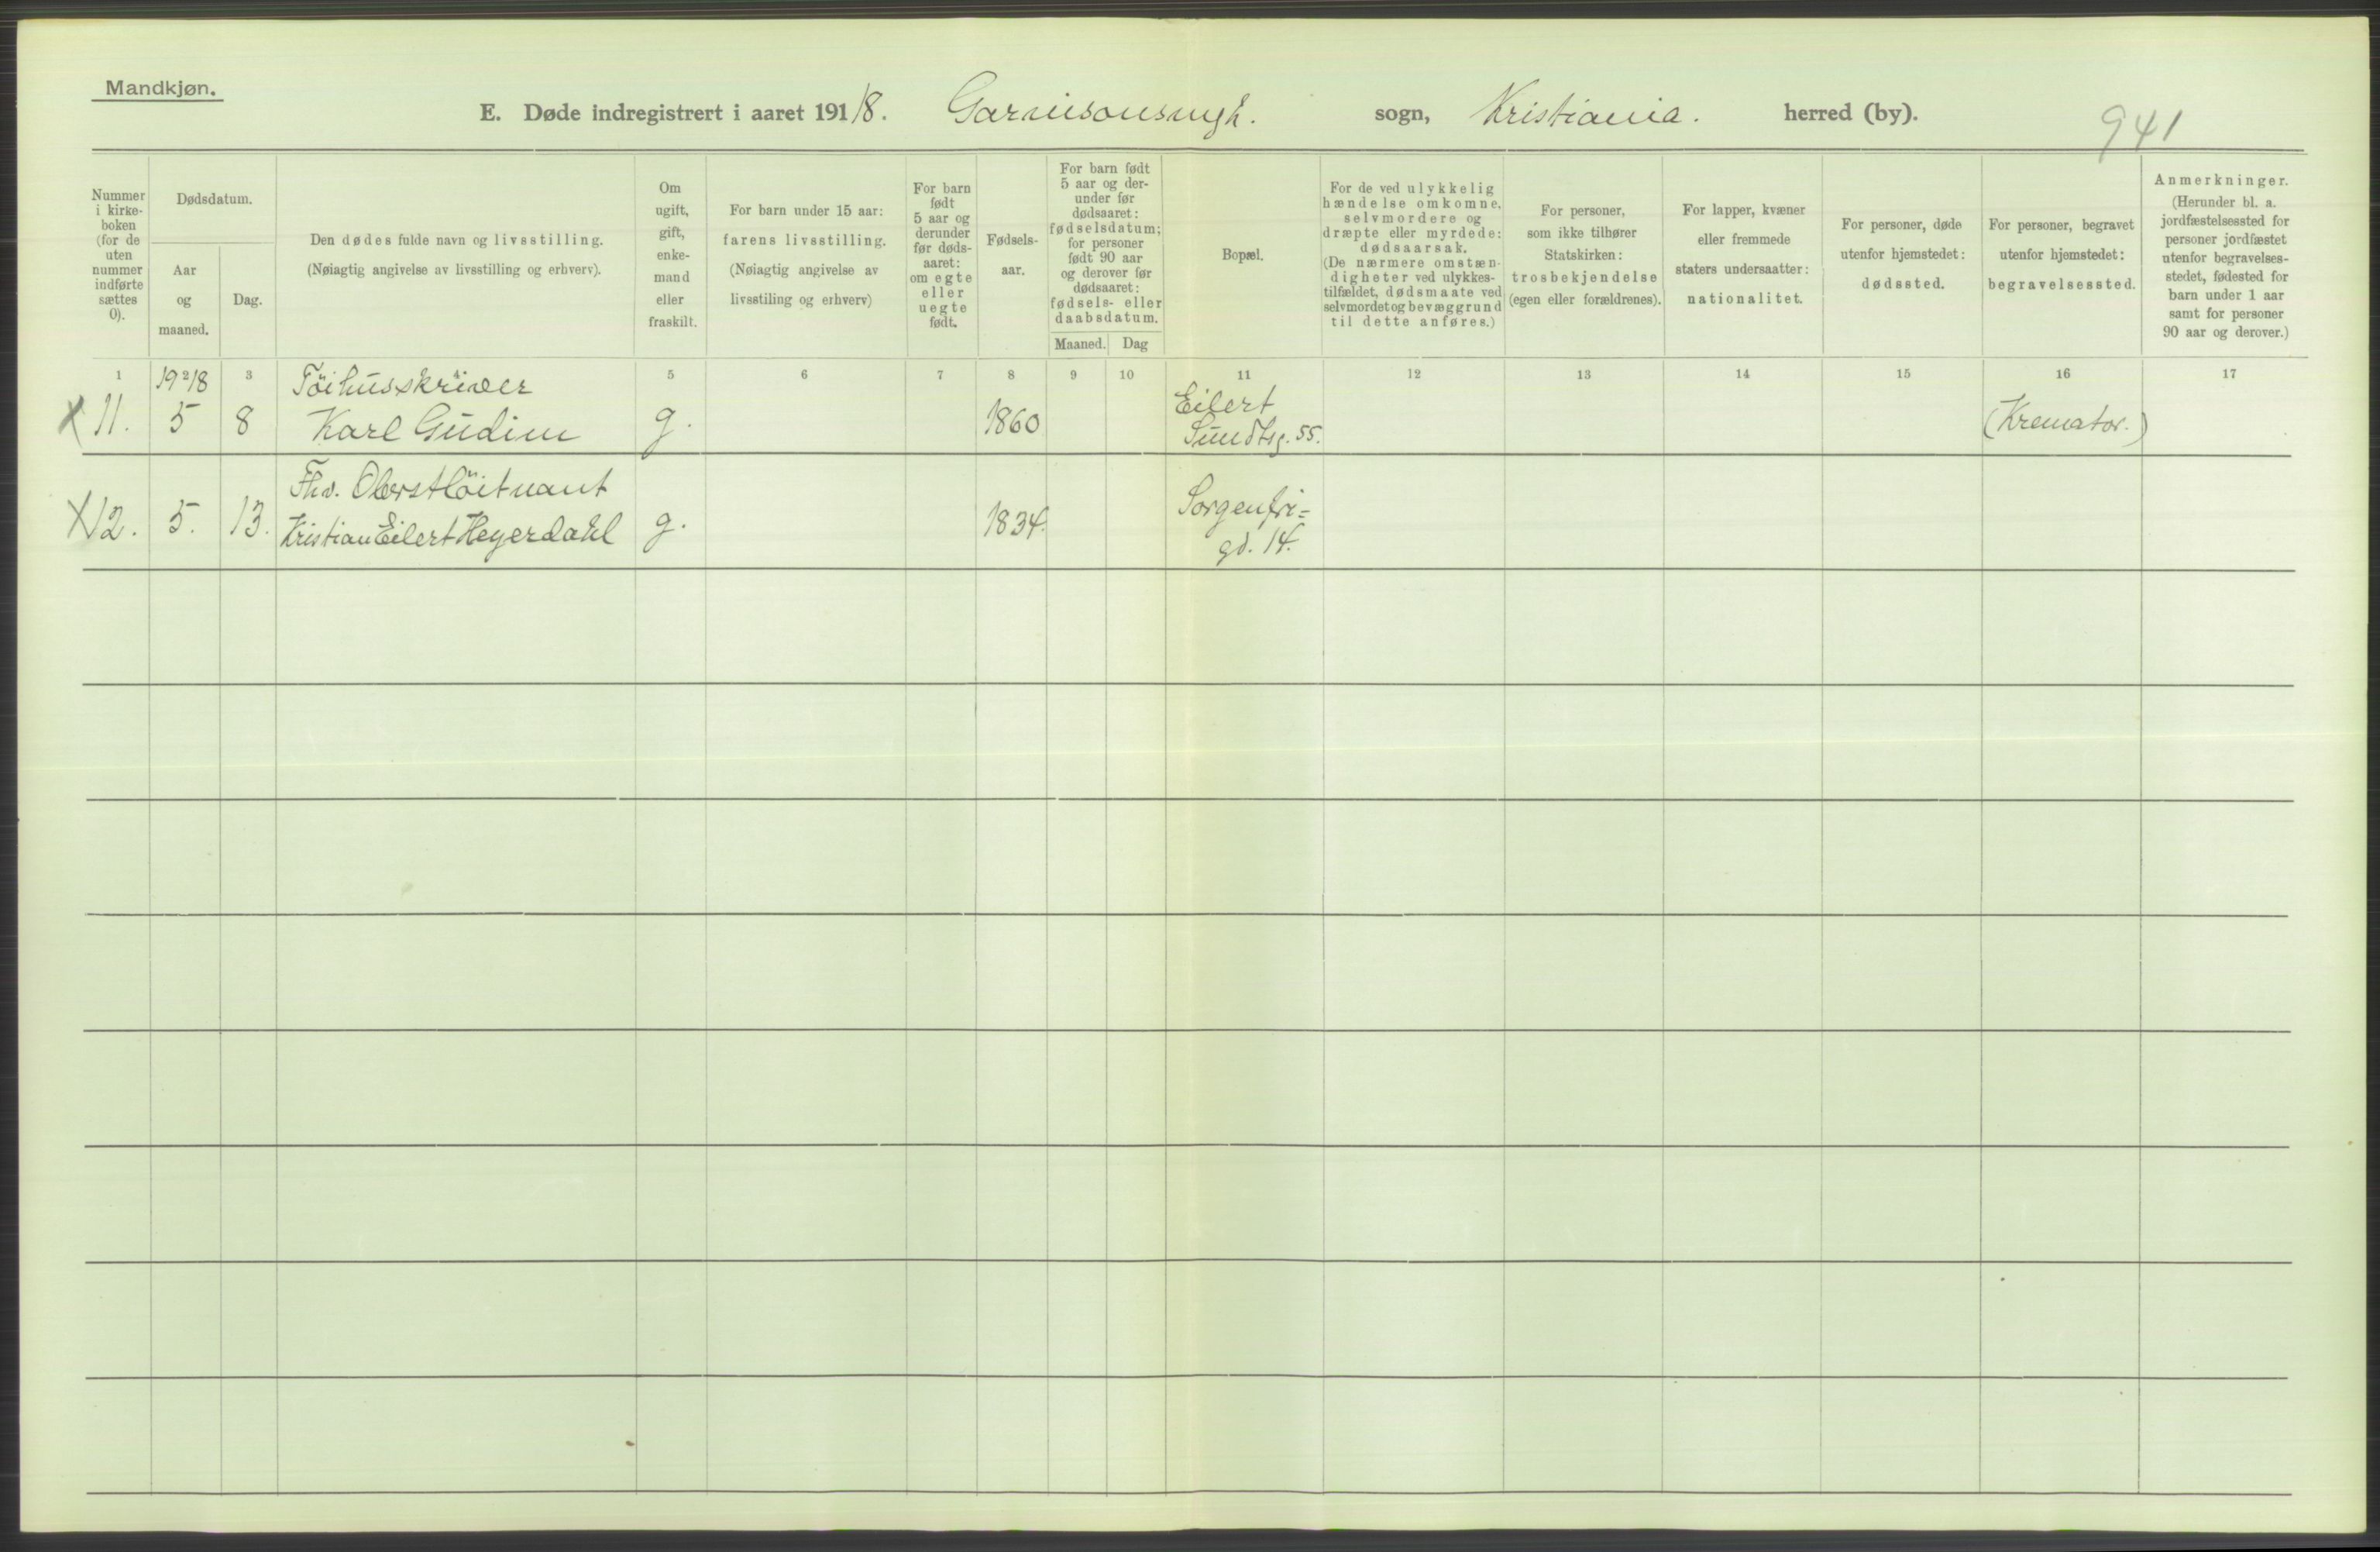 Mandkjøn.
E. Døde indregistrert i aaret 1918. Garnisonsmgh. sogn, Kristiania. herred (by).
941
Nummer
i kirke-
boken
(for de
uten
nummer
indførte
sættes
0).
Dødsdatum.
Aar
og
maaned.
Dag.
Den dødes fulde navn og livsstilling.
(Nøiagtig angivelse av livsstilling og erhverv).
Om
ugift,
gift,
enke-
mand
eller
fraskilt.
For barn under 15 aar:
farens livsstilling.
(Nøiagtig angivelse av
livsstiling og erhverv)
For barn
født
5 aar og
derunder
før døds-
aaret:
om egte
eller
uegte
født.
Fødsels-
aar.
For barn født
5 aar og der-
under før
dødsaaret:
fødselsdatum;
for personer
født 90 aar
og derover før
dødsaaret:
fødsels- eller
daabsdatum.
Maaned. Dag
Bopæl.
For de ved ulykkelig
hændelse omkomne,
selvmordere og
dræpte eller myrdede:
dødsaarsak.
(De nærmere omstæn-
digheter ved ulykkes-
tilfældet, dødsmaate ved
selvmordet og bevæggrund
til dette anføres.)
For personer,
som ikke tilhører
Statskirken:
trosbekjendelse
(egen eller forældrenes).
For lapper, kvæner
eller fremmede
staters undersaatter:
nationalitet.
For personer, døde
utenfor hjemstedet:
dødssted.
For personer, begravet
utenfor hjemstedet:
begravelsessted.
Anmerkninger.
(Herunder bl. a.
jordfæstelsessted for
personer jordfæstet
utenfor begravelses-
stedet, fødested for
barn under 1 aar
samt for personer
90 aar og derover.)
1 2 3 5 6 7 8 9 10 11 12 13 14 15 16 17
1918 Töihusskriver Eilert
X 11. 5 8 Karl Gudim g. 1860 Sundtsg. 55. (Kremator.)
Fhv. Oberstlöitnant Sorgenfri=
X 12. 5. 13. Kristian Eilert Heyerdahl g. 1834. gd. 14.